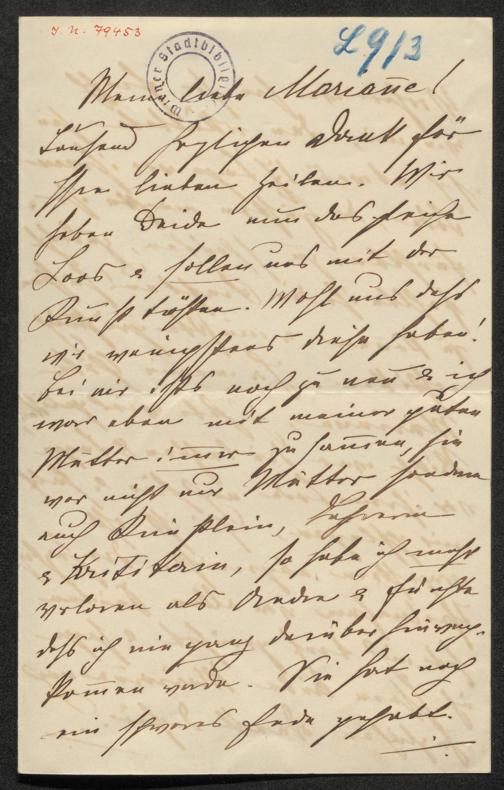 J. N. 79453
L9/3
Wiener Stadtbibliothek
Meine liebe Marianne!
Tausend herzlichen Dank für
Ihre lieben Zeilen. Wir
haben Beide nun das gleiche
Loos & sollen uns mit der
Kunst trösten. Wohl uns daß
wir wenigstens diese haben!
Bei mir ists noch zu neu & ich
war eben mit meiner guten
Mutter immer zusammen, sie
war nicht nur Mutter sondern
auch Künstlerin, Lehrerin
& Kritikerin, so habe ich mehr
verloren als Andre & fürchte
daß ich nie ganz darüber hinweg-
kommen werde. Sie hat noch
ein schweres Ende gehabt.